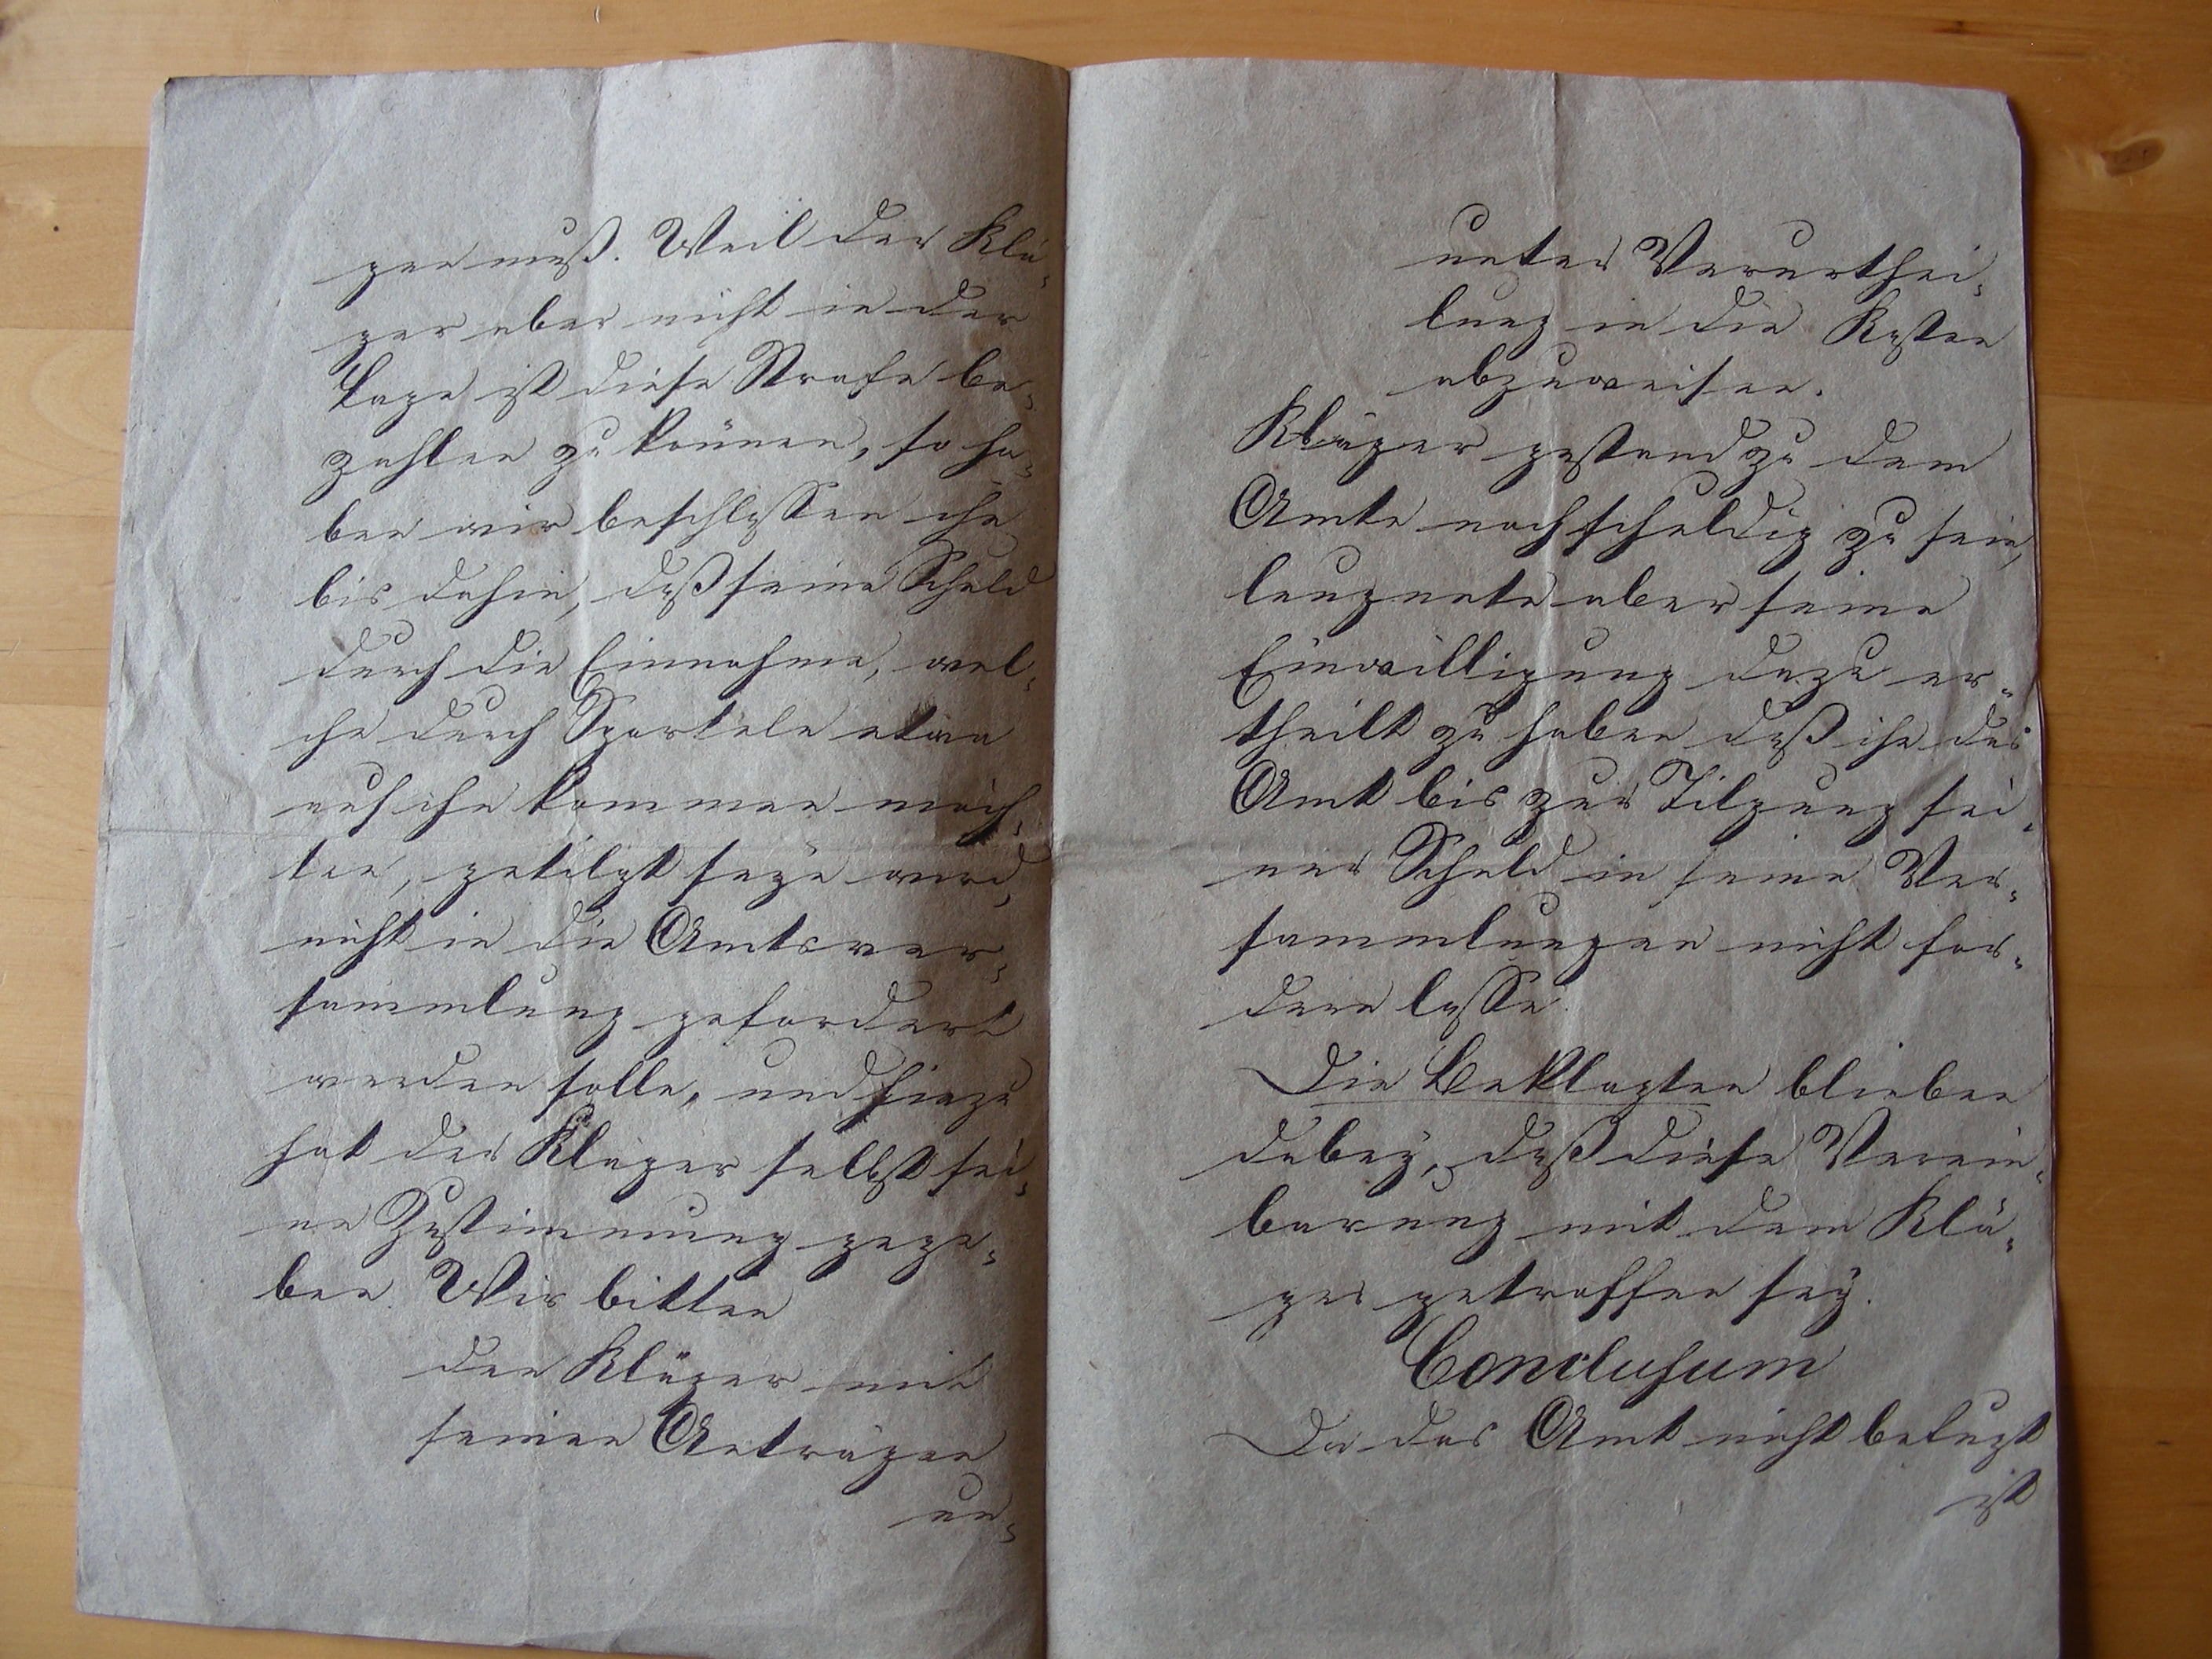 gen muß. Weil der Klä-
ger aber nicht in der
Lage ist diese Strafe be-
zahlen zu können, so ha-
ben wir beschlossen ihn
bis dahin, daß seine Schuld
durch die Einnahme, wel-
che durch Sporteln etwa
auf ihn kommen möch-
ten, getilgt seyn wird,
nicht in die Amtsver-
sammlung gefordert
werden solle, und hiezu
hat der Kläger selbst sei-
ne Zustimmung gege-
ben. Wir bitten
den Kläger mit
seinen Anträgen
un-
unter Verurthei-
lung in die Kosten
abzuweisen.
Kläger gestand zu dem
Amte noch schuldig zu sein,
leugnete aber seine
Einwilligung dazu er-
theilt zu haben daß ihn das
Amt bis zur Tilgung sei-
ner Schuld in seine Ver-
sammlungen nicht for-
dern lasse.
Die Beklagten blieben
dabey, daß diese Verein-
barung mit dem Klä-
ger getroffen sey.
Conclusum
Da das Amt nicht befugt
ist